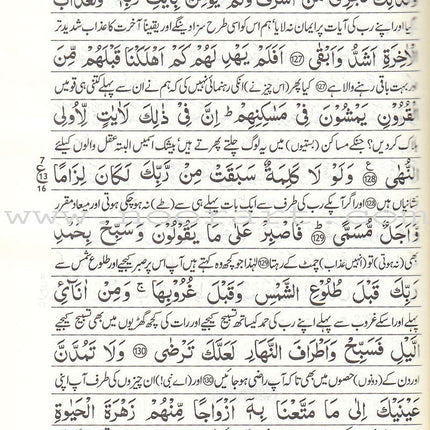 وَكَذٰلِكَ نَجْزِىْ مَنْ اَسْرَفَ وَلَمْ يُؤْمِنْۢ بِاٰيٰتِ رَبِّهٖ ؕ وَلَعَذَابُ
گیا اور اپنے رب کی آیات پر ایمان نہ لایا ہم اس کو اسی طرح سزا دینگے اور یقیناً آخرت کا عذاب شدید تر
الْاٰخِرَةِ اَشَدُّ وَاَبْقٰى ﴿127﴾ اَفَلَمْ يَهْدِ لَهُمْ كَمْ اَهْلَكْنَا قَبْلَهُمْ مِّنَ
اور بہت باقی رہنے والا ہے ﴿127﴾ کیا پھر (اس چیز نے) انکی رہنمائی نہیں کی کہ ہم نے ان سے پہلے کتنی ہی قومیں
الْقُرُوْنِ يَمْشُوْنَ فِىْ مَسٰكِنِهِمْ ؕ اِنَّ فِىْ ذٰلِكَ لَاٰيٰتٍ لِّاُولِى
ہلاک کر دیں؟ جنکے مساکن (بستیوں) میں یہ لوگ چلتے پھرتے ہیں بیشک اسمیں البتہ عقل والوں کیلئے
النُّهٰى ﴿128﴾ ع وَلَوْ لَا كَلِمَةٌ سَبَقَتْ مِنْ رَّبِّكَ لَكَانَ لِزَامًا
7 ع 13 16
نشانیاں ہیں ﴿128﴾ اور اگر آپکے رب کی طرف سے ایک بات پہلے ہی سے (طے) نہ ہو چکی ہوتی اور میعاد مقرر
وَّاَجَلٌ مُّسَمًّى ﴿129﴾ فَاصْبِرْ عَلٰى مَا يَقُوْلُوْنَ وَسَبِّحْ بِحَمْدِ
بھی (نہ ہوتی) تو (انہیں عذاب) چمٹ کے رہتا ﴿129﴾ لہٰذا جو کچھ وہ کہتے ہیں آپ اس پر صبر کیجیے اور طلوع شمس سے
رَبِّكَ قَبْلَ طُلُوْعِ الشَّمْسِ وَقَبْلَ غُرُوْبِهَا ۚ وَمِنْ اٰنَآئِ
پہلے اور اسکے غروب سے پہلے اپنے رب کی حمد کیساتھ تسبیح کیجیے اور رات کی کچھ گھڑیوں میں بھی تسبیح کیجیے
الَّيْلِ فَسَبِّحْ وَاَطْرَافَ النَّهَارِ لَعَلَّكَ تَرْضٰى ﴿130﴾ وَلَا تَمُدَّنَّ
اور دن کے (دونوں) حصوں میں بھی تا کہ آپ راضی ہو جائیں ﴿130﴾ اور (اے نبی!) ان چیزوں کی طرف آپ اپنی
عَيْنَيْكَ اِلٰى مَا مَتَّعْنَا بِهٖٓ اَزْوَاجًا مِّنْهُمْ زَهْرَةَ الْحَيٰوةِ